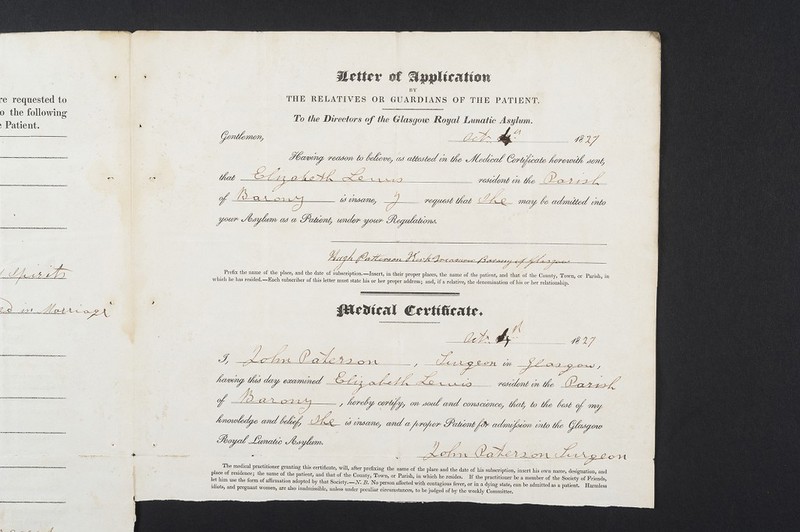 re requested to
o the following
Patient.
Spirits
ed in Marriage
Letter of Application
BY
THE RELATIVES OR GUARDIANS OF THE PATIENT.
To the Directors of the Glasgow Royal Lunatic Asylum.
Gentlemen, Octr. 4 1827
Having reason to believe, as attested in the Medical Certificate herewith sent,
that Elizabeth Lewis resident in the Parish
of Barony is insane, I request that She may be admitted into
your Asylum as a Patient, under your Regulations.
Hugh Patterson Kirk Barony of Glasgow
Prefix the name of the place, and the date of subscription.—Insert, in their proper places, the name of the patient, and that of the County, Town, or Parish, in
which he has resided.—Each subscriber of this letter must state his or her proper address; and, if a relative, the denomination of his or her relationship.
Medical Certificate.
Octr. 4 1827
I, John Paterson, Surgeon in Glasgow,
having this day examined Elizabeth Lewis resident in the Parish
of Barony, hereby certify, on soul and conscience, that, to the best of my
knowledge and belief, She is insane, and a proper Patient for admission into the Glasgow
Royal Lunatic Asylum.
John Paterson Surgeon
The medical practitioner granting this certificate, will, after prefixing the name of the place and the date of his subscription, insert his own name, designation, and
place of residence; the name of the patient, and that of the County, Town, or Parish, in which he resides. If the practitioner be a member of the Society of Friends,
let him use the form of affirmation adopted by that Society.—N. B. No person affected with contagious fever, or in a dying state, can be admitted as a patient. Harmless
idiots, and pregnant women, are also inadmissible, unless under peculiar circumstances, to be judged of by the weekly Committee.